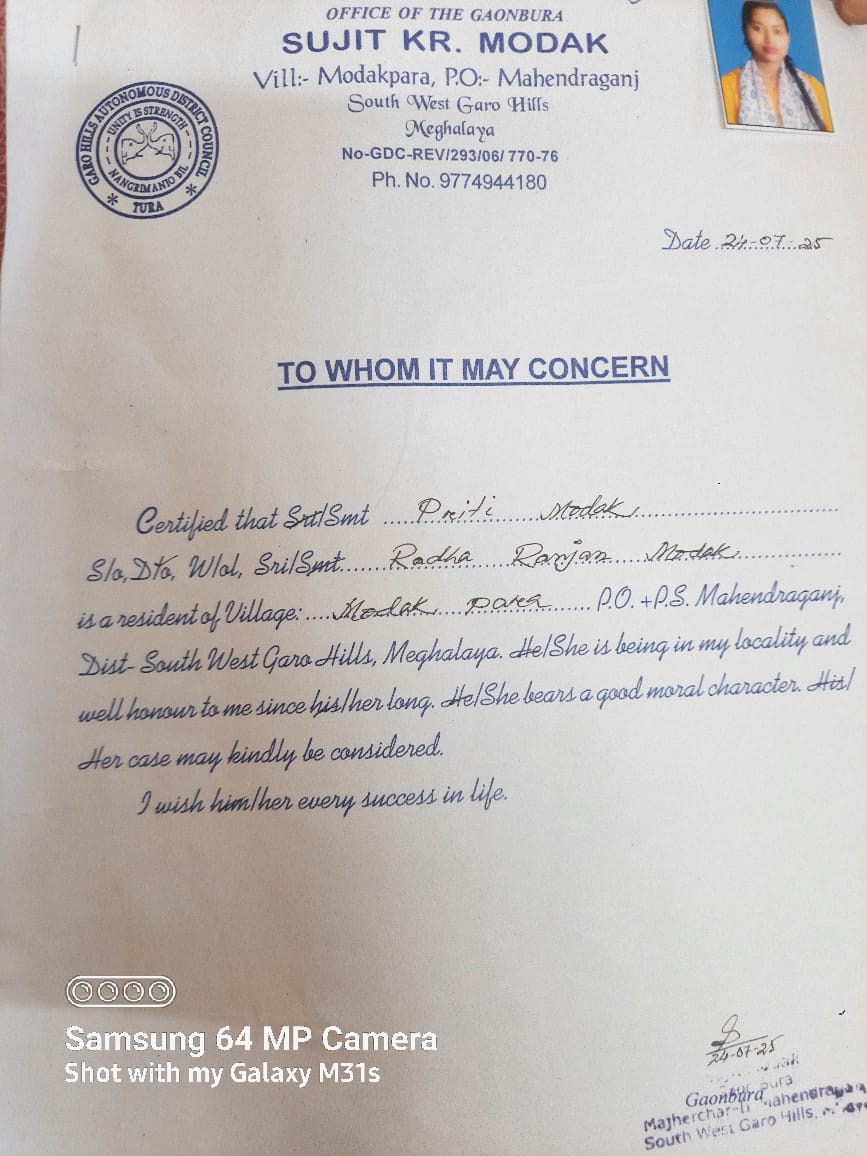 OFFICE OF THE GAONBURA
SUJIT KR. MODAK
Vill:- Modakpara, P.O:- Mahendraganj
South West Garo Hills
Meghalaya
No-GDC-REV/293/06/ 770-76
Ph. No. 9774944180
GARO HILLS AUTONOMOUS DISTRICT COUNCIL
UNITY IS STRENGTH
NANGRIMANIO BIL
* TURA *
Date 24-07-25
TO WHOM IT MAY CONCERN
Certified that Sri/Smt Priti Modak
S/o, D/o, W/o, Sri/Smt Radha Ranjan Modak
is a resident of Village: Modak para P.O. +P.S. Mahendraganj,
Dist- South West Garo Hills, Meghalaya. He/She is being in my locality and
well honour to me since his/her long. He/She bears a good moral character. His/
Her case may kindly be considered.
I wish him/her every success in life.
24-07-25
Gaonbura
Majherchar-II Mahendraganj
South West Garo Hills,
Samsung 64 MP Camera
Shot with my Galaxy M31s